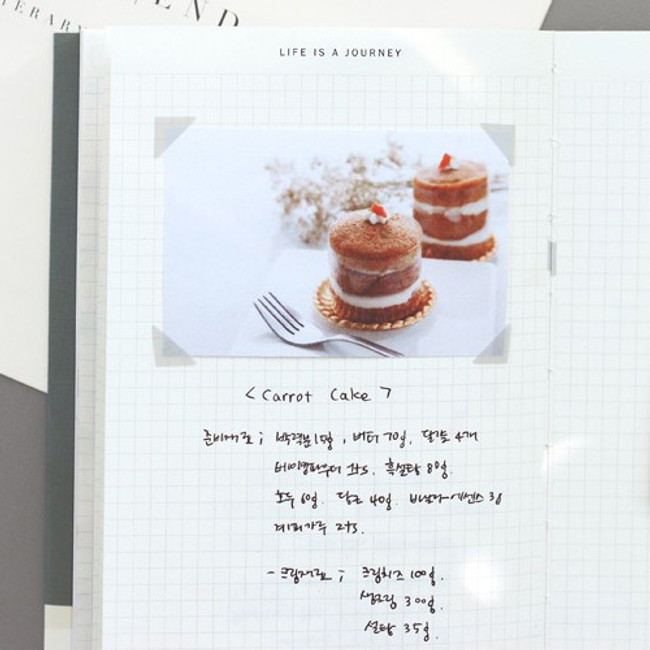 END
ERARY
LIFE IS A JOURNEY
< Carrot Cake >
준비재료 ; 박력분 15g, 버터 70g, 달걀 4개
베이킹파우더 1ts, 흑설탕 80g.
호두 6g. 당근 40g. 바닐라에센스 3g
계피가루 2ts.
- 크림재료 ; 크림치즈 100g.
생크림 300g.
설탕 35g.